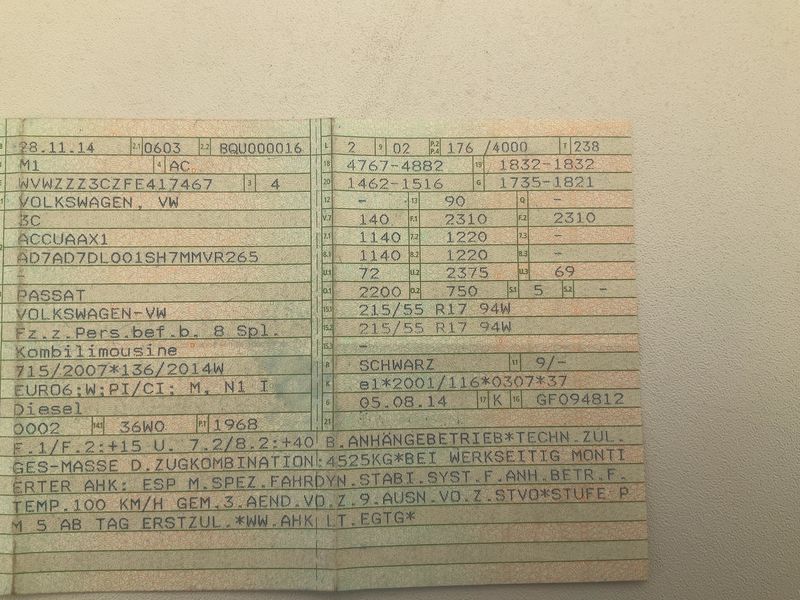 28.11.14 2.1 0603 2.2 BQU000016
M1 4 AC
WVWZZZ3CZFE417467 3 4
VOLKSWAGEN, VW
3C
ACCUAAX1
AD7AD7DL001SH7MMVR265
-
PASSAT
VOLKSWAGEN-VW
Fz.z.Pers.bef.b. 8 Spl.
Kombilimousine
715/2007*136/2014W
EURO6;W;PI/CI; M, N1 I
Diesel
0002 14.1 36W0 P.1 1968
L 2 9 02 P.2 P.4 176 /4000 T 238
18 4767-4882 19 1832-1832
20 1462-1516 G 1735-1821
12 - 13 90 Q -
V.7 140 F.1 2310 F.2 2310
7.1 1140 7.2 1220 7.3 -
8.1 1140 8.2 1220 8.3 -
U.1 72 U.2 2375 U.3 69
O.1 2200 O.2 750 S.1 5 S.2 -
15.1 215/55 R17 94W
15.2 215/55 R17 94W
15.3 -
R SCHWARZ 11 9/-
K e1*2001/116*0307*37
6 05.08.14 17 K 16 GF094812
21
F.1/F.2:+15 U. 7.2/8.2:+40 B.ANHÄNGEBETRIEB*TECHN.ZUL.
GES-MASSE D.ZUGKOMBINATION:4525KG*BEI WERKSEITIG MONTI
ERTER AHK: ESP M.SPEZ.FAHRDYN.STABI.SYST.F.ANH.BETR.F.
TEMP.100 KM/H GEM.3.AEND.VO.Z.9.AUSN.VO.Z.STVO*STUFE P
M 5 AB TAG ERSTZUL.*WW.AHK LT.EGTG*